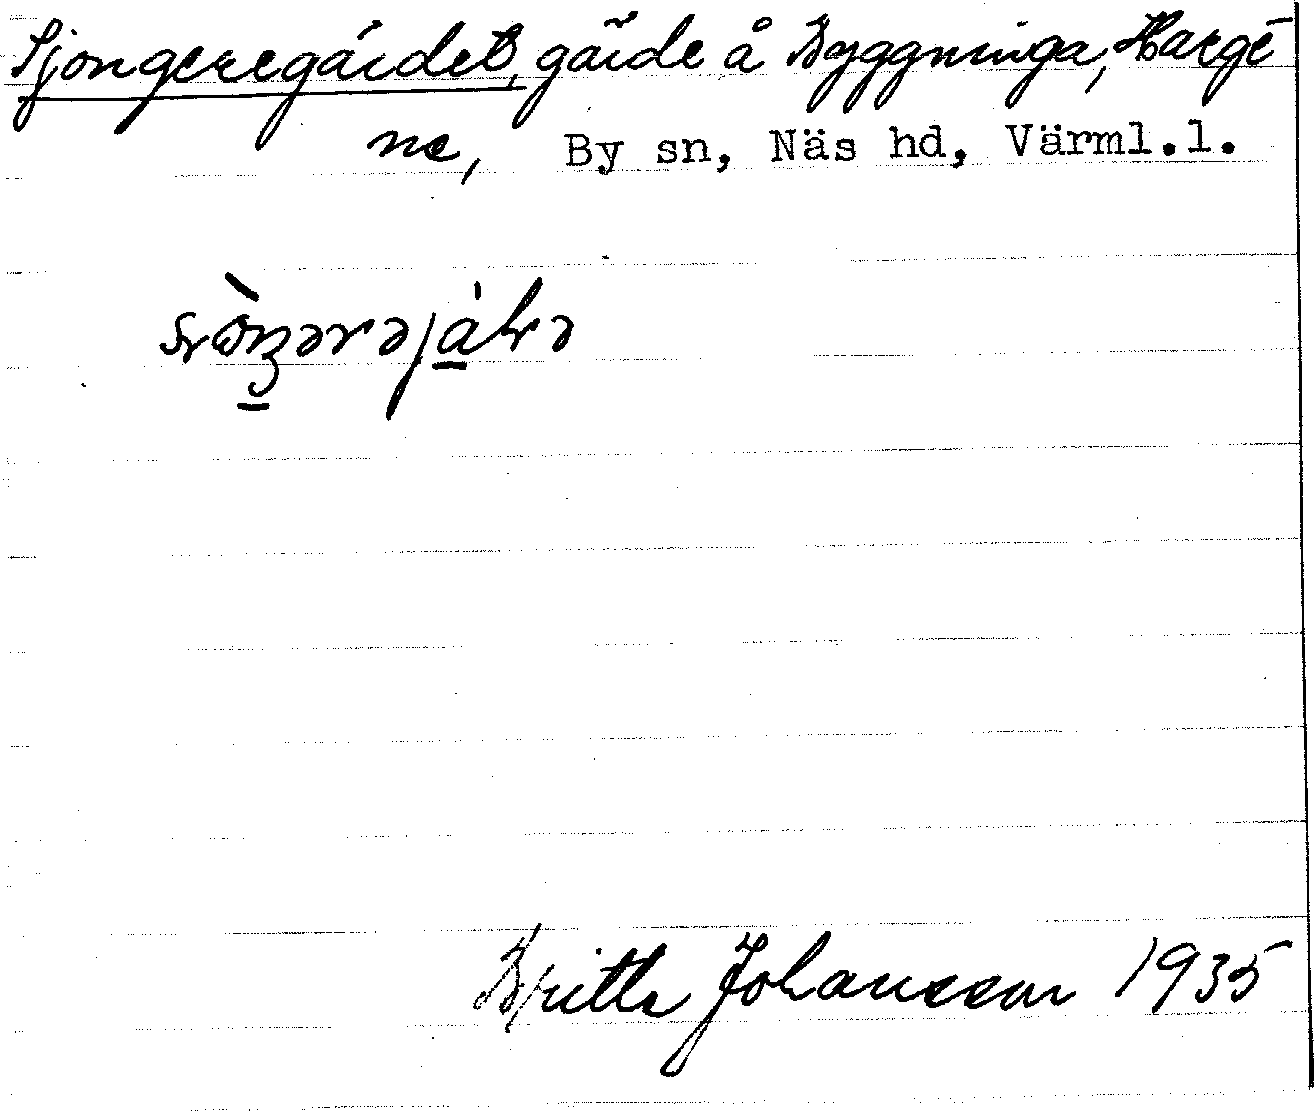 Sjongeregärdet, gärde å Byggninga, Harge
ne, By sn, Näs hd, Värml.l.
Britta Johansson 1935